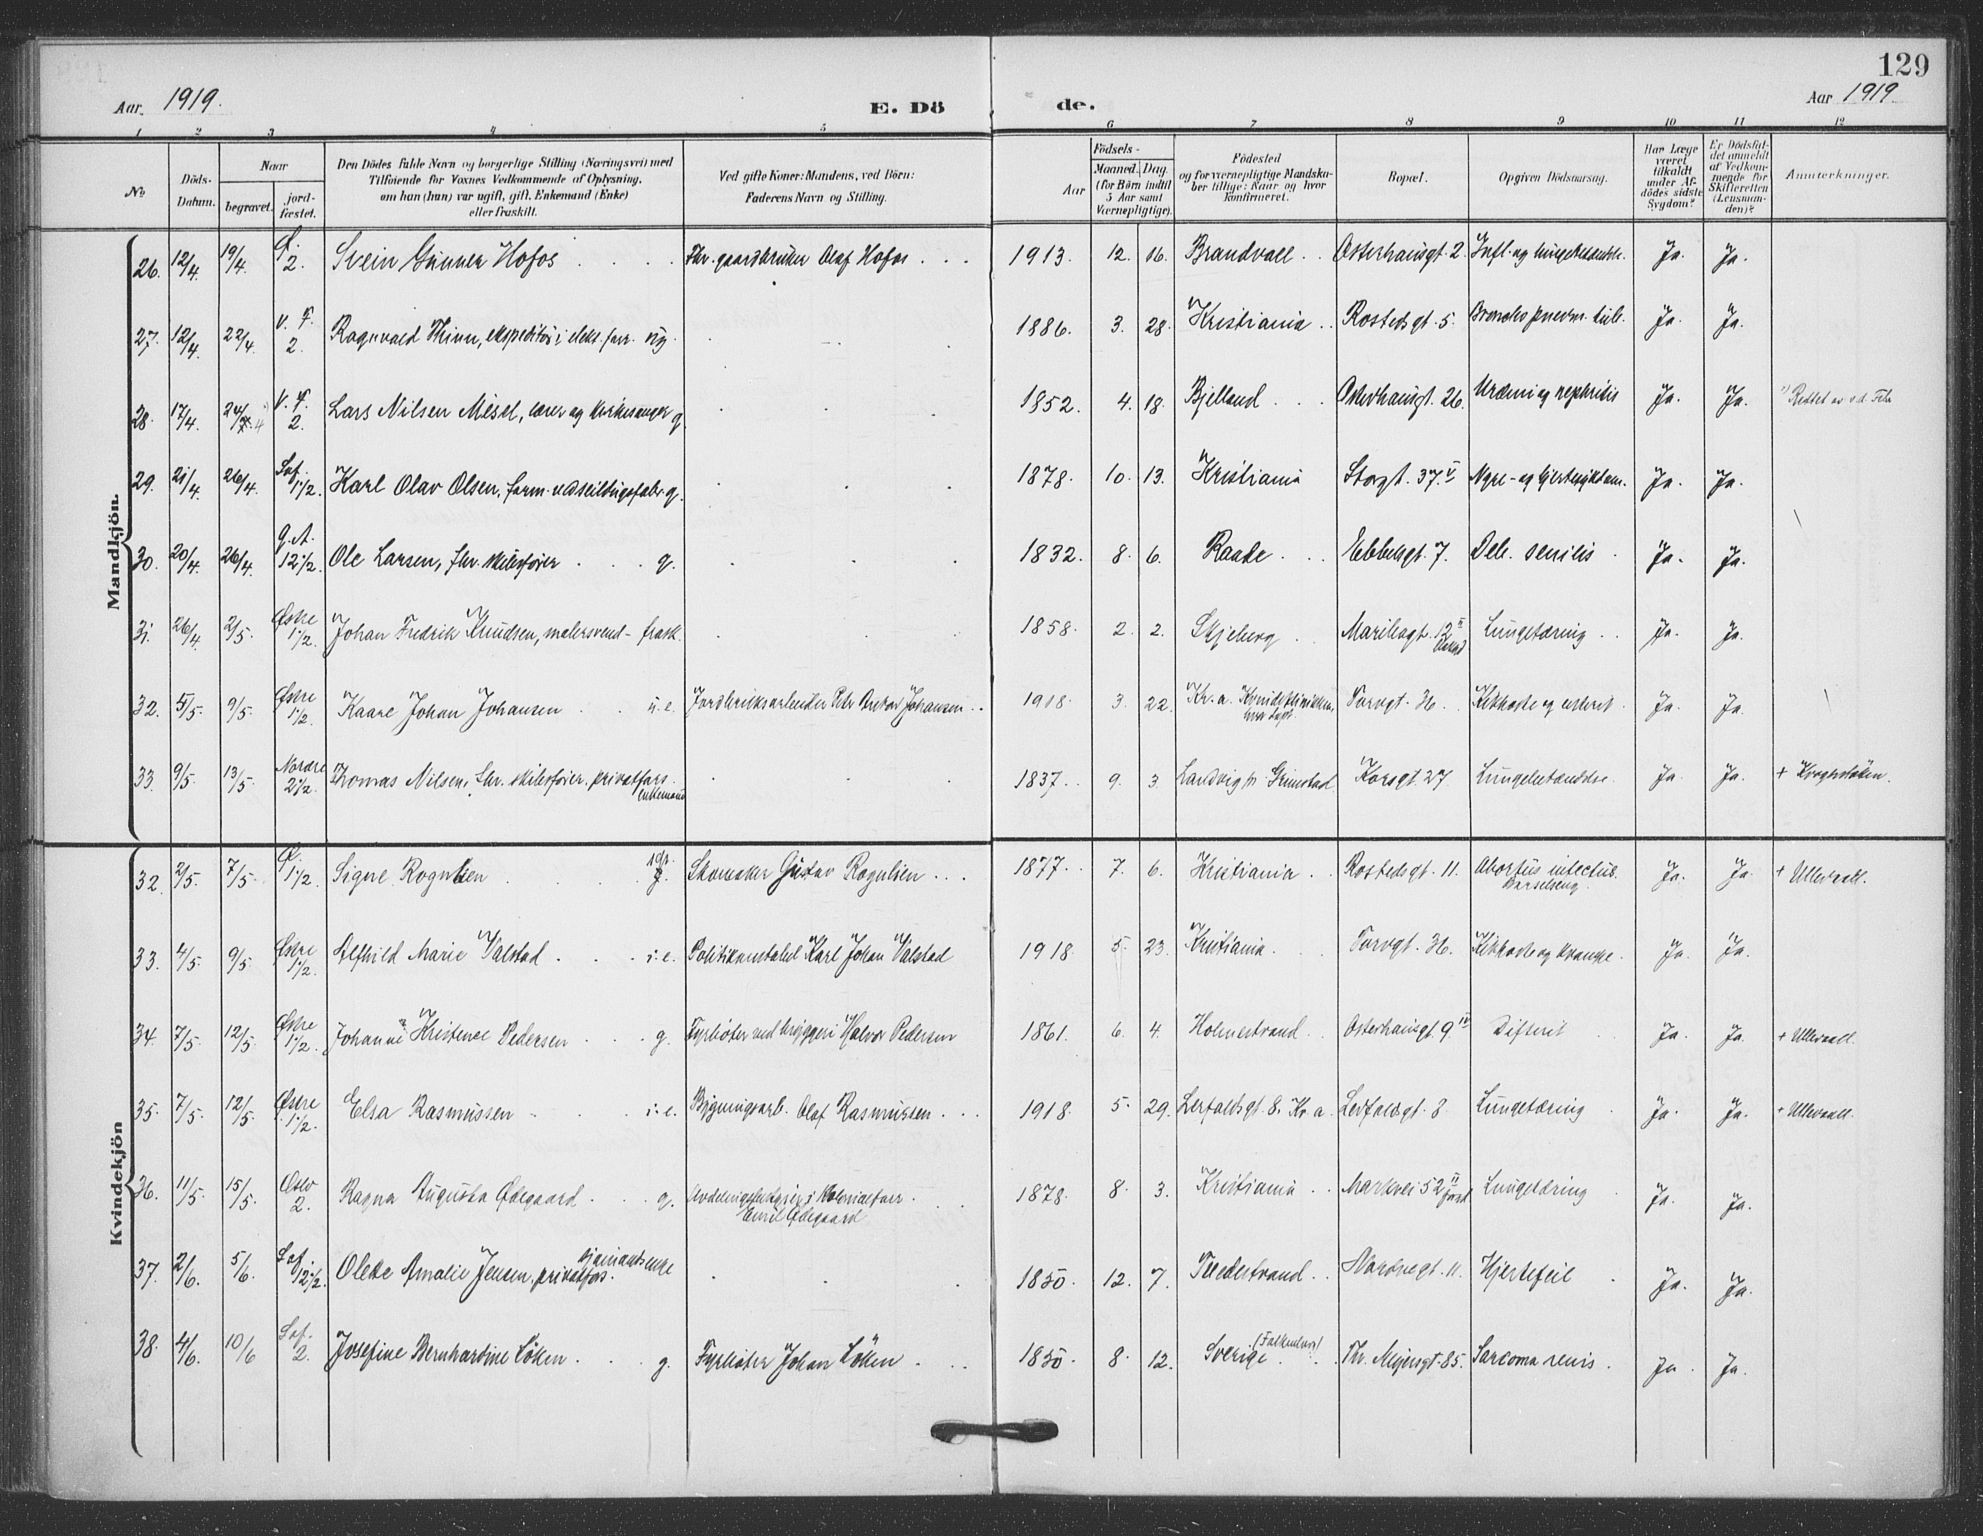 129
Aar 1919. E. Dö de. Aar 1919.
1 2 3 4 5 6 7 8 9 10 11 12
No
Döds-Datum.
Naar
begravet.
jord-fæstet.
Den Dödes fulde Navn og borgerlige Stilling (Næringsvei) med
Tilföiende for Voxnes Vedkommende af Oplysning,
om han (hun) var ugift, gift, Enkemand (Enke)
eller fraskilt.
Ved gifte Koner: Mandens, ved Börn:
Faderens Navn og Stilling.
Födsels-
Aar
Maaned. Dag.
(for Börn indtil
5 Aar samt
Værnepligtige).
Födested
og for værnepligtige Mandska-
ber tillige: Naar og hvor
konfirmeret.
Bopæl.
Opgiven Dödsaarsag.
Har Læge
været
tilkaldt
under Af-
dödes sidste
Sygdom?
Er Dödsfal-
det anmeldt
af Vedkom-
mende for
Skifteretten
(Lensman-
den)?
Anmærkninger.
Mandkjön.
26. 12/4. 19/4. Ø. 2. Svein Gunner Hofos Fhr. gaardbruker Olaf Hofos 1913. 12. 16. Brandvall Osterhausgt. 2. Infl. og lungebetændelse. Ja. Ja.
27. 12/4. 22/4. V. F. 2. Ragnvald Thinn, ekspeditør i elekt. forr. ug. 1886. 3. 28. Kristiania Rostedsgt. 5. Broncho pneum. tub. Ja. Ja.
28. 17/4. 24/4 V. F. 2. Lars Nilsen Mésel, lærer og kirkesanger g. 1852. 4. 18. Bjelland Osterhausgt. 26. Uræmi og nephritis Ja. Ja. Rettet av
29. 21/4. 26/4. Sof. 1 1/2. Karl Olav Olsen, form. g. 1878. 10. 13. Kristiania Storgt. 37 V Nyre- og hjertesykdom. Ja. Ja.
30. 20/4. 26/4. g. A. 12 1/2. Ole Larsen, fhr. skibsfører g. 1832. 8. 6. Raade Ebbelsgt. 7. Deb. senilis Ja. Ja.
31. 26/4. 2/5. Østre 1 1/2. Johan Fredrik Knudsen, malersvend - frask. 1858. 2. 2. Skjeberg Maribogt. 12 II Lungetæring Ja. Ja.
32. 5/5. 9/5. Østre 1 1/2. Kaare Johan Johansen u. e. Johansen 1918. 3. 22. Kr.a. Kvindeklinikken, Torvgt. 36. Kikhoste og enterit. Ja. Ja.
33. 9/5. 13/5. Nordre 2 1/2. Thomas Nilsen, fhr. skibsfører, privat fors. enkemand 1837. 9. 3. Landvig pr. Grimstad Korsgt. 27 Lungebetændelse. Ja. Ja. + Krogstøtten.
Kvindekjön
32. 2/5. 7/5. Ø. 1 1/2. Signe Rognlien g. Skomaker Gustav Rognlien 1877. 7. 6. Kristiania Rostedsgt. 11. Abortus infectus. Barselseng. Ja. Ja. + Ullevaall.
33. 4/5. 9/5. Østre 1 1/2. Alfhild Marie Valstad i. e. Politikonstabel Karl Johan Valstad 1918. 5. 23. Kristiania. Torvgt. 36. Kikhoste og krampe. Ja. Ja.
34. 7/5. 12/5. Østre 1 1/2. Johanne Kristence Pedersen g. Fyrbøter ved bryggeri Halvor Pedersen 1861. 6. 4. Holmestrand Osterhausgt. 9 IV Difterit Ja. Ja. + Ullevaall.
35. 7/5. 12/5. Østre 1 1/2. Elsa Rasmussen i. e. Bygningsarb. Olaf Rasmussen 1918. 5. 29. Leirfaldsgt. 8. Kr.a. Leirfaldsgt. 8 Lungetæring Ja. Ja. + Ullevaall.
36. 11/5. 15/5. Oslo 2. Ragna Augusta Ødegaard g. Avdelingsbestyrer i Kolonialforr. Emil Ødegaard 1878. 8. 3. Kristiania Markvei 52 II Lungetæring Ja. Ja.
37. 2/6. 5/6. Sof. 12 1/2. Olette Amalie Jensen, privat fors. sjømandsenke 1850. 12. 7. Tvedestrand Nordregt. 11. Hjertefeil Ja. Ja.
38. 4/6. 10/6 Sof. 2. Josefine Bernhardine Løken g. Fyrbøter Johan Løken 1850. 8. 12. Sverige (Falkenberg) Th. Meyersgt. 85. Sarcoma renis Ja. Ja.